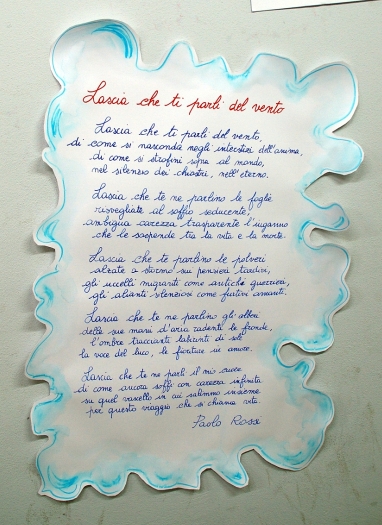 Lascia che ti parli del vento
Lascia che ti parli del vento,
di come si nasconda negli interstizi dell'anima,
di come si strofini sopra al mondo,
nel silenzio dei chiostri, nell'eterno.
Lascia che te ne parlino le foglie
risvegliate al soffio seducente,
ambigua carezza, trasparente l'inganno
che le sospende tra la vita e la morte.
Lascia che te ne parlino le polveri
alzate a stormo sui pensieri tardivi,
gli uccelli migranti come antichi guerrieri,
gli alianti silenziosi come furtivi amanti.
Lascia che te ne parlino gli alberi
delle sue mani d'aria radenti le fronde,
l'ombre traccianti labirinti di sole
la voce del luco, le fioriture in amore.
Lascia che te ne parli il mio cuore
di come ancora soffi con carezza infinita
su quel vascello in cui salimmo insieme
per questo viaggio che si chiama vita.
Paolo Rossi